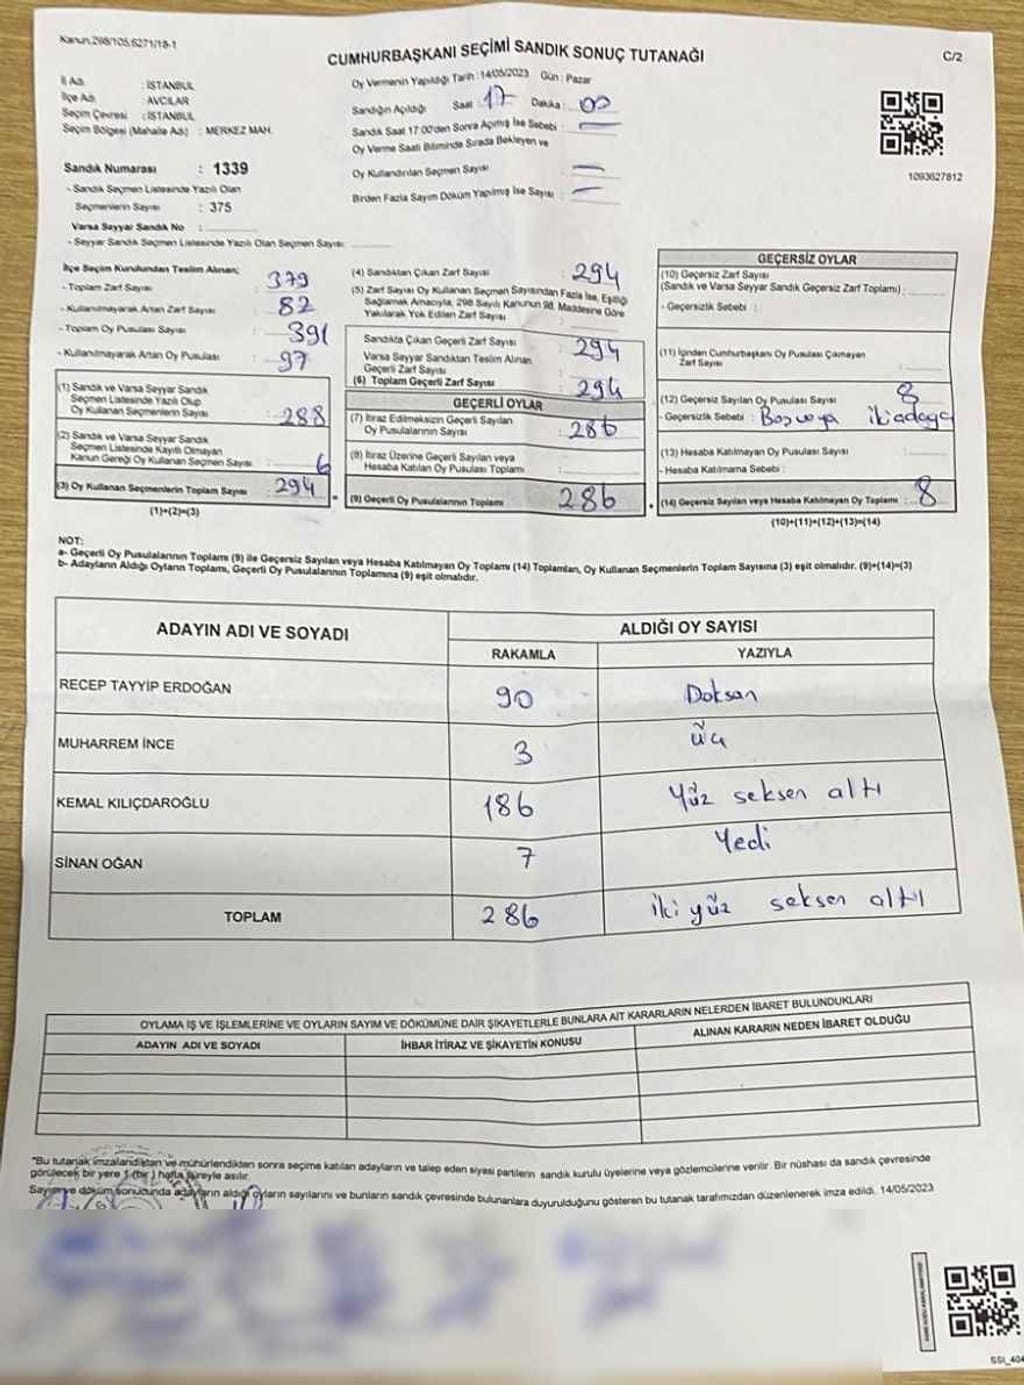 Kanun,298/105,6271/18-1
CUMHURBAŞKANI SEÇİMİ SANDIK SONUÇ TUTANAĞI
C/2
İl Adı : İSTANBUL
İlçe Adı : AVCILAR
Seçim Çevresi : İSTANBUL
Seçim Bölgesi (Mahalle Adı) : MERKEZ MAH.
Oy Vermenin Yapıldığı Tarih : 14/05/2023 Gün : Pazar
Sandığın Açıldığı Saat : 17 Dakika : 00
Sandık Saat 17:00'den Sonra Açılmış İse Sebebi : —
Oy Verme Saati Bitiminde Sırada Bekleyen ve
Oy Kullandırılan Seçmen Sayısı : —
Birden Fazla Sayım Döküm Yapılmış İse Sayısı : —
1093627812
Sandık Numarası : 1339
- Sandık Seçmen Listesinde Yazılı Olan
Seçmenlerin Sayısı : 375
Varsa Seyyar Sandık No :
- Seyyar Sandık Seçmen Listesinde Yazılı Olan Seçmen Sayısı:
İlçe Seçim Kurulundan Teslim Alınan;
- Toplam Zarf Sayısı : 379
- Kullanılmayarak Artan Zarf Sayısı : 82
- Toplam Oy Pusulası Sayısı : 391
- Kullanılmayarak Artan Oy Pusulası : 97
(1) Sandık ve Varsa Seyyar Sandık
Seçmen Listesinde Yazılı Olup
Oy Kullanan Seçmenlerin Sayısı : 288
(2) Sandık ve Varsa Seyyar Sandık
Seçmen Listesinde Kayıtlı Olmayan
Kanun Gereği Oy Kullanan Seçmen Sayısı : 6
(3) Oy Kullanan Seçmenlerin Toplam Sayısı : 294
(1)+(2)=(3)
(4) Sandıktan Çıkan Zarf Sayısı : 294
(5) Zarf Sayısı Oy Kullanan Seçmen Sayısından Fazla İse, Eşitliği
Sağlamak Amacıyla, 298 Sayılı Kanunun 98. Maddesine Göre
Yakılarak Yok Edilen Zarf Sayısı :
Sandıkta Çıkan Geçerli Zarf Sayısı : 294
Varsa Seyyar Sandıktan Teslim Alınan
Geçerli Zarf Sayısı
(6) Toplam Geçerli Zarf Sayısı : 294
GEÇERLİ OYLAR
(7) İtiraz Edilmeksizin Geçerli Sayılan
Oy Pusulalarının Sayısı : 286
(8) İtiraz Üzerine Geçerli Sayılan veya
Hesaba Katılan Oy Pusulası Toplamı :
(9) Geçerli Oy Pusulalarının Toplamı : 286
GEÇERSİZ OYLAR
(10) Geçersiz Zarf Sayısı
(Sandık ve Varsa Seyyar Sandık Geçersiz Zarf Toplamı) :
- Geçersizlik Sebebi :
(11) İçinden Cumhurbaşkanı Oy Pusulası Çıkmayan
Zarf Sayısı :
(12) Geçersiz Sayılan Oy Pusulası Sayısı : 8
- Geçersizlik Sebebi : Boş veya iki adaya
(13) Hesaba Katılmayan Oy Pusulası Sayısı :
- Hesaba Katılmama Sebebi :
(14) Geçersiz Sayılan veya Hesaba Katılmayan Oy Toplamı : 8
(10)+(11)+(12)+(13)=(14)
NOT:
a- Geçerli Oy Pusulalarının Toplamı (9) ile Geçersiz Sayılan veya Hesaba Katılmayan Oy Toplamı (14) Toplamları, Oy Kullanan Seçmenlerin Toplam Sayısına (3) eşit olmalıdır. (9)+(14)=(3)
b- Adayların Aldığı Oyların Toplamı, Geçerli Oy Pusulalarının Toplamına (9) eşit olmalıdır.
ADAYIN ADI VE SOYADI ALDIĞI OY SAYISI
RAKAMLA YAZIYLA
RECEP TAYYİP ERDOĞAN 90 Doksan
MUHARREM İNCE 3 üç
KEMAL KILIÇDAROĞLU 186 Yüz seksen altı
SİNAN OĞAN 7 Yedi
TOPLAM 286 iki yüz seksen altı
OYLAMA İŞ VE İŞLEMLERİNE VE OYLARIN SAYIM VE DÖKÜMÜNE DAİR ŞİKAYETLERLE BUNLARA AİT KARARLARIN NELERDEN İBARET BULUNDUKLARI
ADAYIN ADI VE SOYADI İHBAR İTİRAZ VE ŞİKAYETİN KONUSU ALINAN KARARIN NEDEN İBARET OLDUĞU
*Bu tutanak imzalandıktan ve mühürlendikten sonra seçime katılan adayların ve talep eden siyasi partilerin sandık kurulu üyelerine veya gözlemcilerine verilir. Bir nüshası da sandık çevresinde
görülecek bir yere 1 (bir) hafta süreyle asılır.
Sayım ve döküm sonucunda adayların aldığı oyların sayılarını ve bunların sandık çevresinde bulunanlara duyurulduğunu gösteren bu tutanak tarafımızdan düzenlenerek imza edildi. 14/05/2023
SSI_404